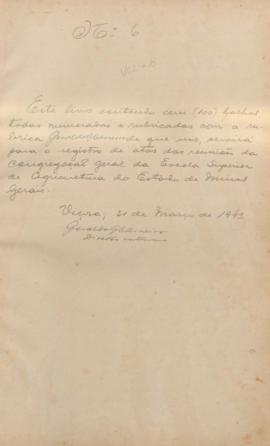 Nº: 6
Este livro contendo cem (100) folhas
todas numeradas e rubricadas com a ru-
brica que uso, servirá
para o registro de atas das reunião da
Congregação Geral da Escola Superior
de Agricultura do Estado de Minas
Gerais.
Viçosa, 21 de Março de 1942
Geraldo G Carneiro
Diretor interino